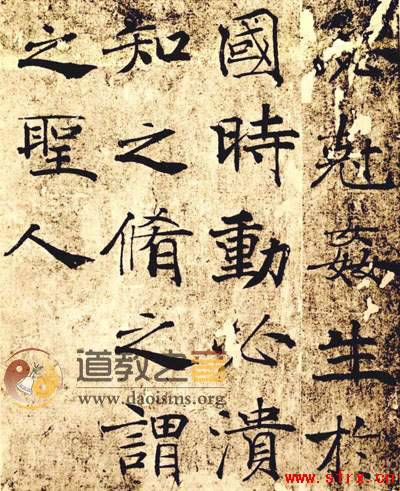 尅姦生於
國時動必潰
知之脩之謂
之聖人
道教之音
www.daoisms.org
www.sfrx.cn